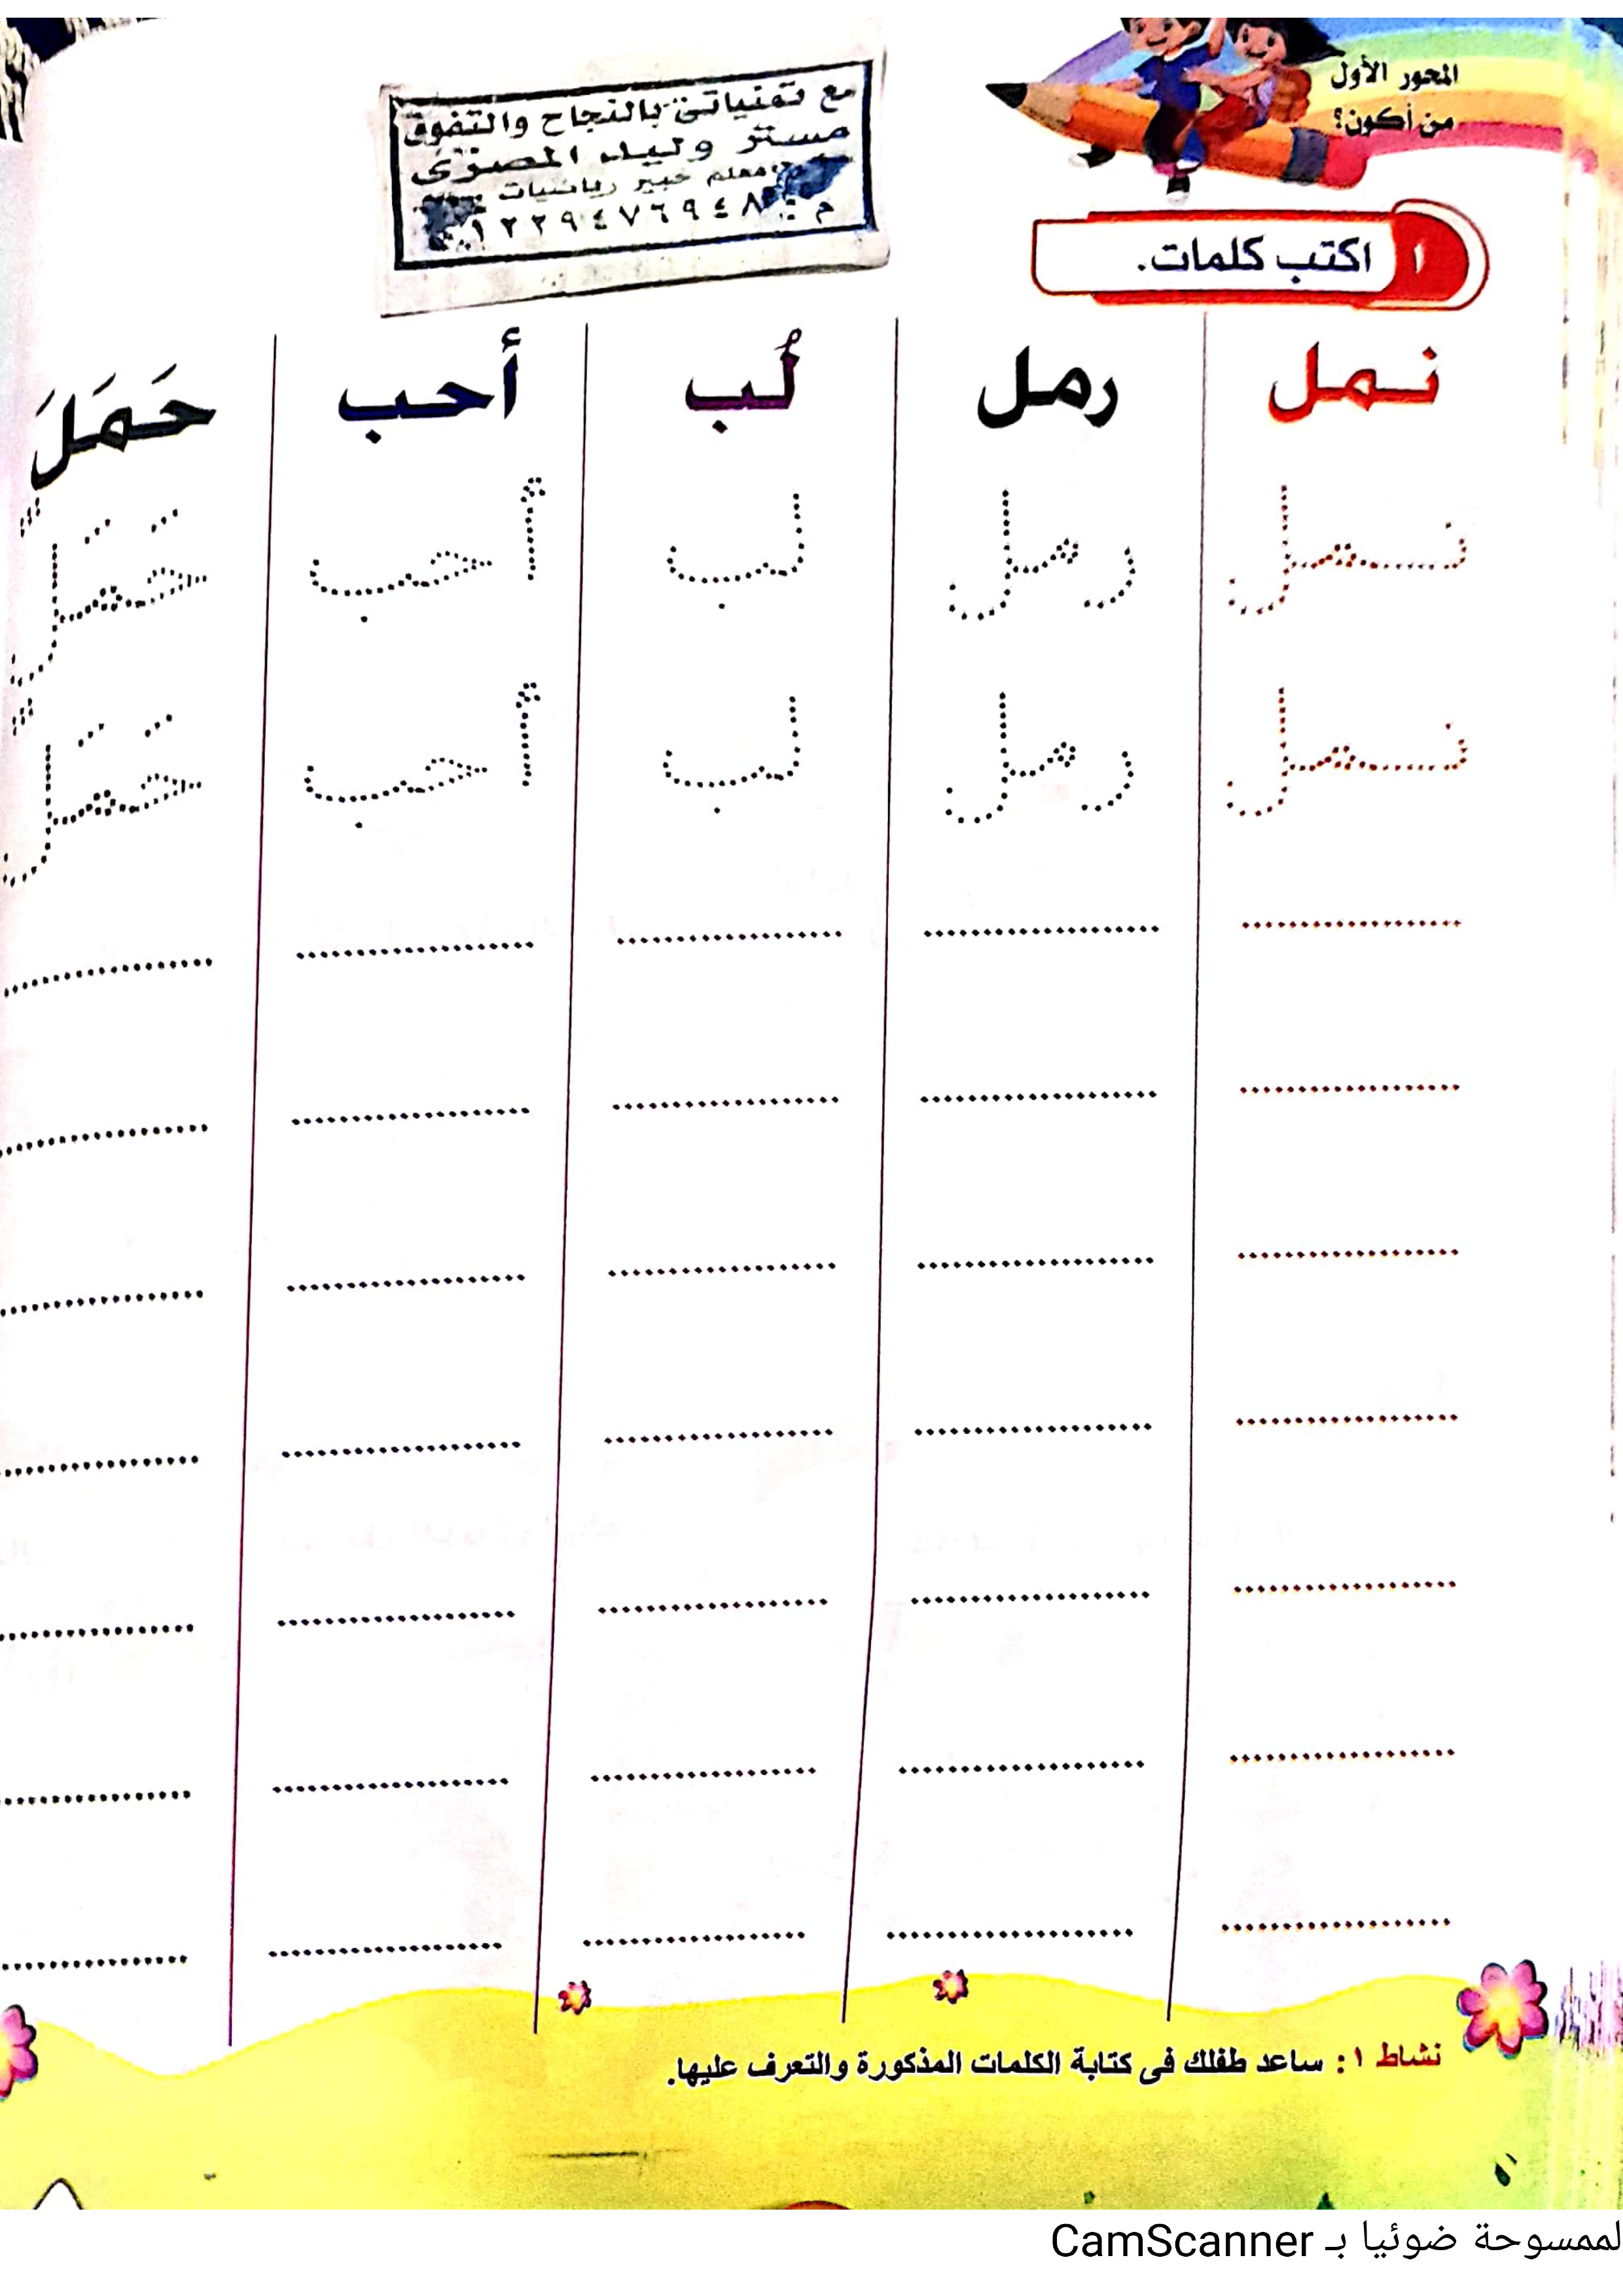 المحور الأول
من أكون؟
مع تمنياتى بالنجاح والتفوق
مستر وليد المصرى
معلم خبير رياضيات
١ اكتب كلمات.
نمل رمل لُب أحب حَمَلَ
نمل رمل لب أحب حَمَلَ
نمل رمل لب أحب حَمَلَ
نشاط ١ : ساعد طفلك فى كتابة الكلمات المذكورة والتعرف عليها.
لممسوحة ضوئيا بـ CamScanner